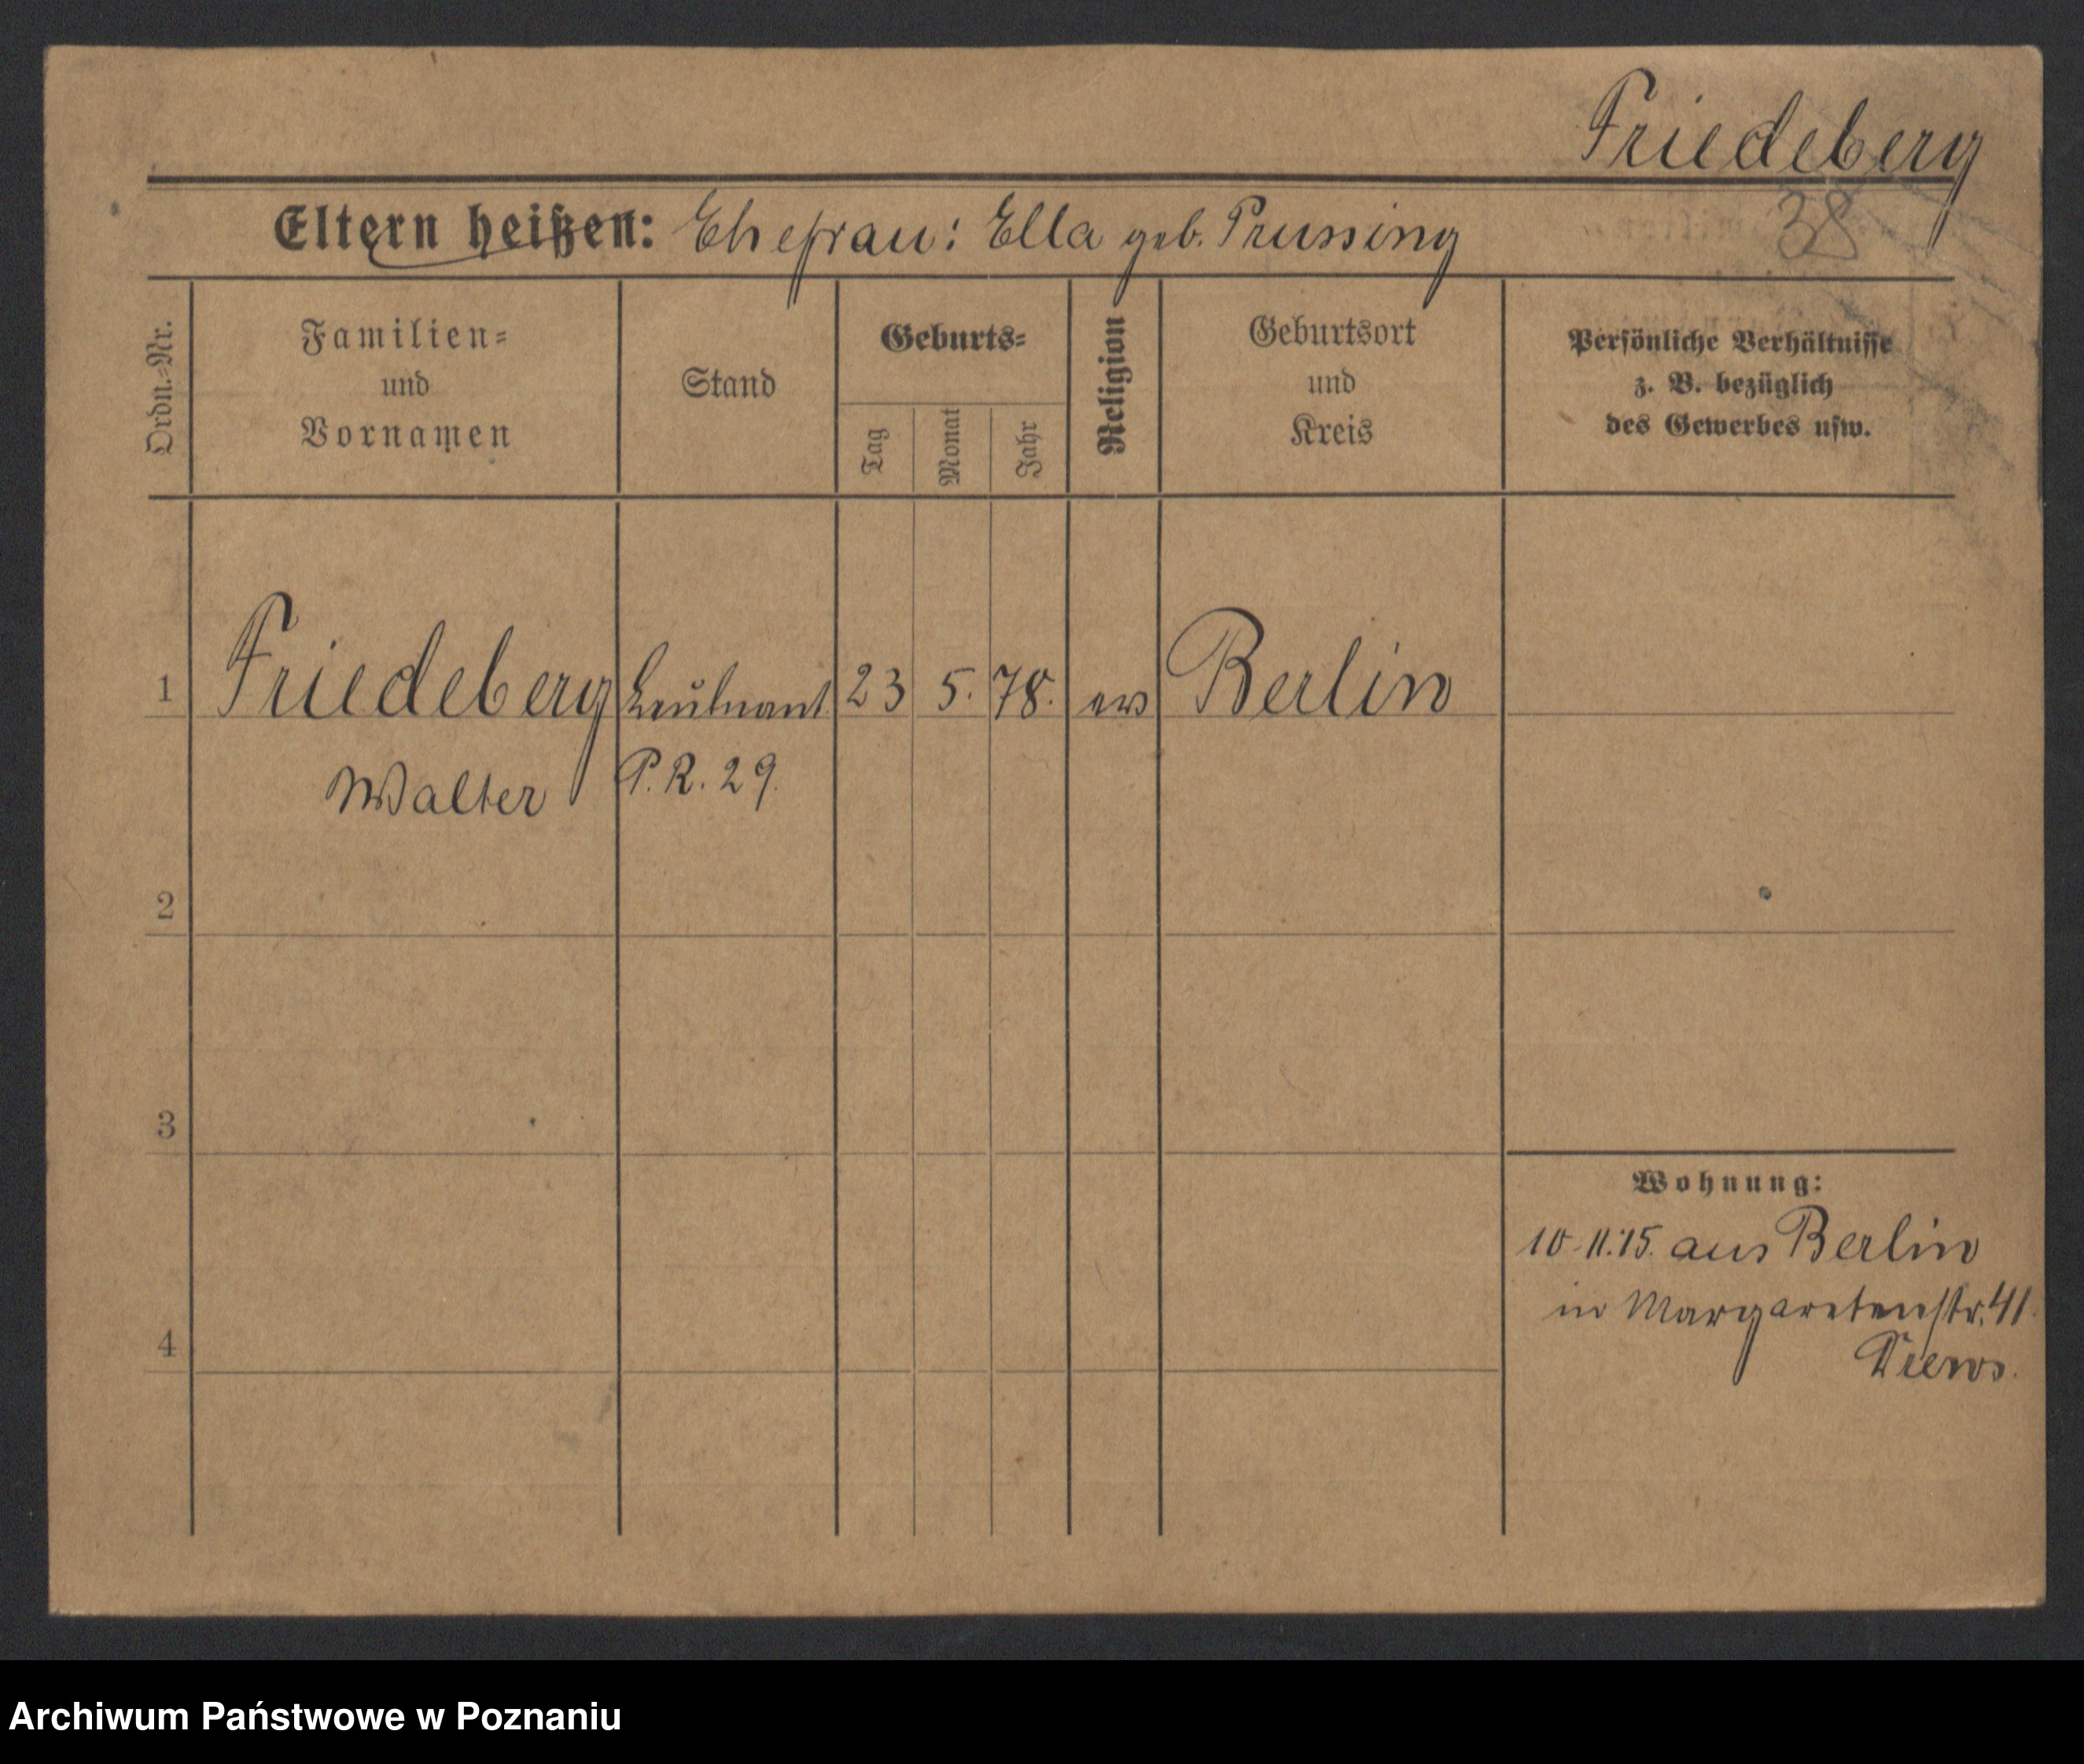 Friedeberg
38
Eltern heißen: Ehefrau: Ella geb. Prussing
Ordn.-Nr.
Familien-
und
Vornamen
Stand
Geburts-
Tag
Monat
Jahr
Religion
Geburtsort
und
Kreis
Persönliche Verhältnisse
z. B. bezüglich
des Gewerbes usw.
1 Friedeberg Leutnant 23 5. 78. ev Berlin
Walter P. R. 29.
2
3
Wohnung:
10-11.15. aus Berlin
in Margaretenstr. 41.
4
Archiwum Państwowe w Poznaniu